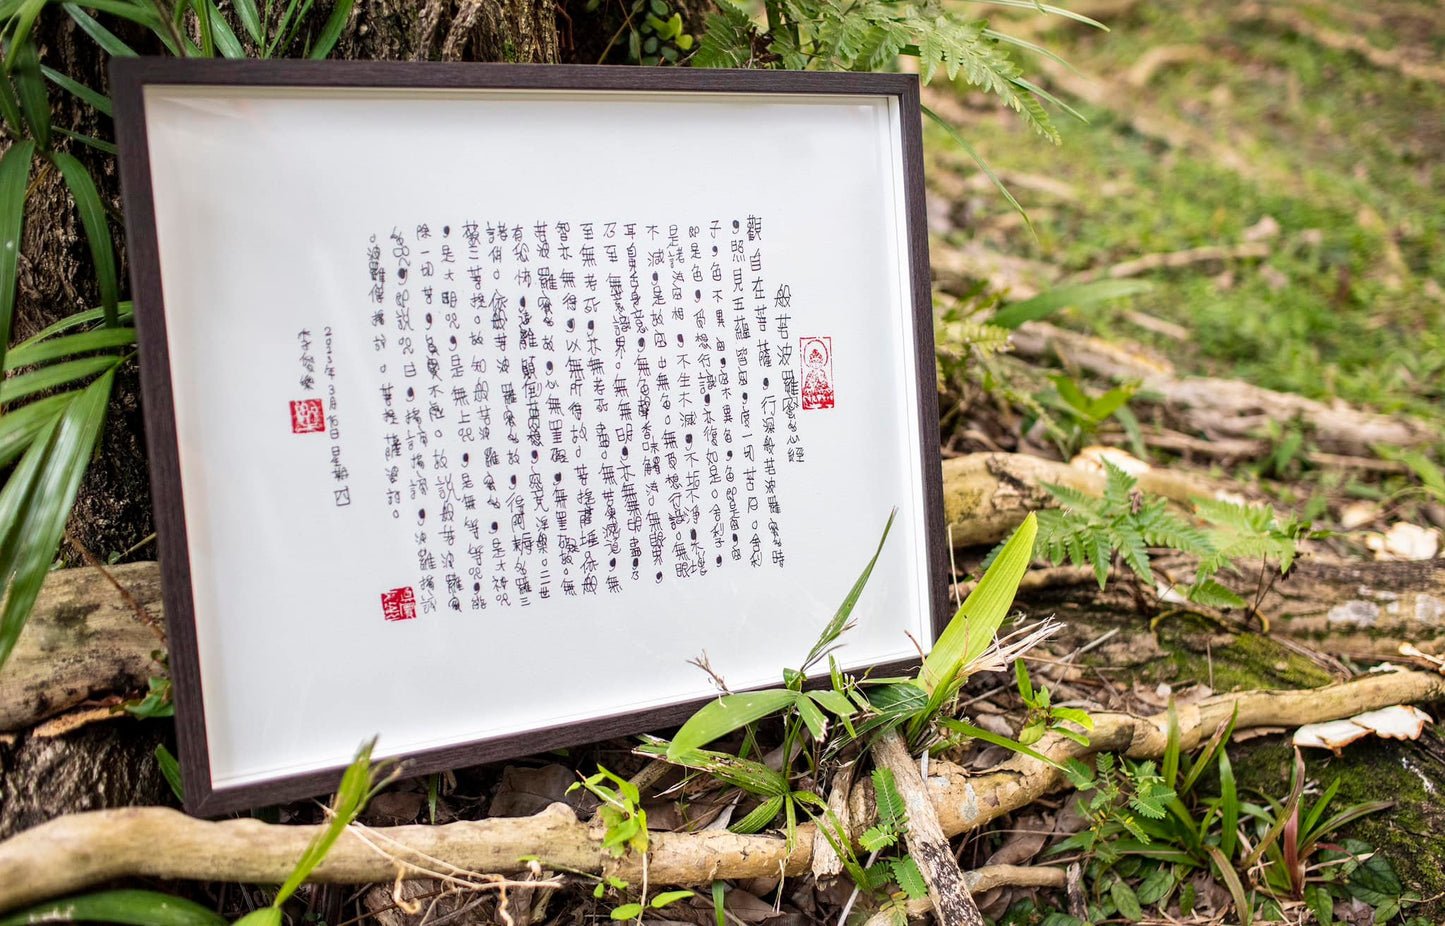 般若波羅蜜多心經
觀自在菩薩，行深般若波羅蜜多時
，照見五蘊皆空，度一切苦厄。舍利
子，色不異空，空不異色，色即是空，空
即是色，受想行識，亦復如是。舍利子，
是諸法空相，不生不滅，不垢不淨，不增
不減，是故空中無色，無受想行識。無眼
耳鼻舌身意，無色聲香味觸法，無眼界，
乃至無意識界。無無明，亦無無明盡，乃
至無老死，亦無老死盡。無苦集滅道，無
智亦無得，以無所得故。菩提薩埵，依般
若波羅蜜多故，心無罣礙，無罣礙故。無
有恐怖，遠離顛倒夢想，究竟涅槃。三世
諸佛。依般若波羅蜜多故，得阿耨多羅三
藐三菩提。故知般若波羅蜜多。是大神咒
，是大明咒，是無上咒，是無等等咒，能
除一切苦，真實不虛。故說般若波羅蜜
多咒，即說咒曰，揭諦揭諦，波羅揭諦
。波羅僧揭諦。菩提薩婆訶。
2023年3月16日星期四
李俊樂